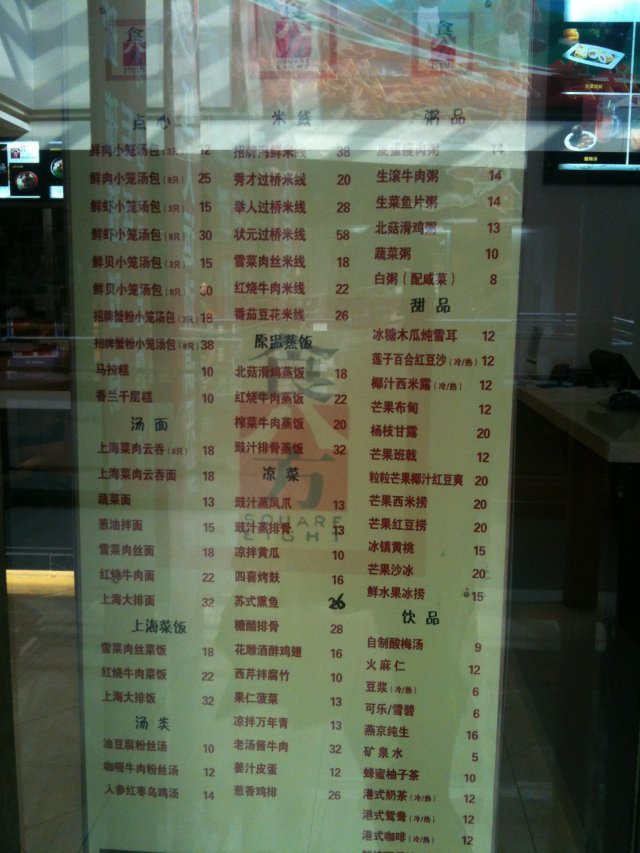 点心
鲜肉小笼汤包（3只） 12
鲜肉小笼汤包（8只） 25
鲜虾小笼汤包（3只） 15
鲜虾小笼汤包（8只） 30
鲜贝小笼汤包（3只） 15
鲜贝小笼汤包（8只）
招牌蟹粉小笼汤包（3只）
招牌蟹粉小笼汤包（8只） 38
马拉糕 10
香兰千层糕 10
汤面
上海菜肉云吞（8只） 18
上海菜肉云吞面 18
蔬菜面 13
葱油拌面 15
雪菜肉丝面 18
红烧牛肉面 22
上海大排面 32
上海菜饭
雪菜肉丝菜饭 18
红烧牛肉菜饭 22
上海大排饭 32
汤类
油豆腐粉丝汤 10
咖喱牛肉粉丝汤 12
人参红枣乌鸡汤 14
米线
招牌海鲜米线 38
秀才过桥米线 20
举人过桥米线 28
状元过桥米线 58
雪菜肉丝米线 18
红烧牛肉米线 22
番茄豆花米线 26
原盅蒸饭
北菇滑鸡蒸饭 18
红烧牛肉蒸饭 22
榨菜牛肉蒸饭 20
豉汁排骨蒸饭 32
凉菜
豉汁蒸凤爪 13
豉汁蒸排骨 13
凉拌黄瓜 10
四喜烤麸 16
苏式熏鱼 26
糖醋排骨 28
花雕酒醉鸡翅 16
西芹拌腐竹 10
果仁菠菜 13
凉拌万年青 13
老汤酱牛肉 32
姜汁皮蛋 12
葱香鸡排 26
粥品
皮蛋瘦肉粥 14
生滚牛肉粥 14
生菜鱼片粥 14
北菇滑鸡粥 13
蔬菜粥 10
白粥（配咸菜） 8
甜品
冰糖木瓜炖雪耳 12
莲子百合红豆沙（冷/热） 12
椰汁西米露（冷/热） 12
芒果布甸 12
杨枝甘露 20
芒果班戟 12
粒粒芒果椰汁红豆爽 20
芒果西米捞 20
芒果红豆捞 20
冰镇黄桃 15
芒果沙冰 20
鲜水果冰捞 15
饮品
自制酸梅汤 9
火麻仁 12
豆浆（冷/热） 6
可乐/雪碧 6
燕京纯生 16
矿泉水 5
蜂蜜柚子茶 10
港式奶茶（冷/热） 12
港式鸳鸯（冷/热） 12
港式咖啡（冷/热） 12
食
八
方
SQUARE
EIGHT